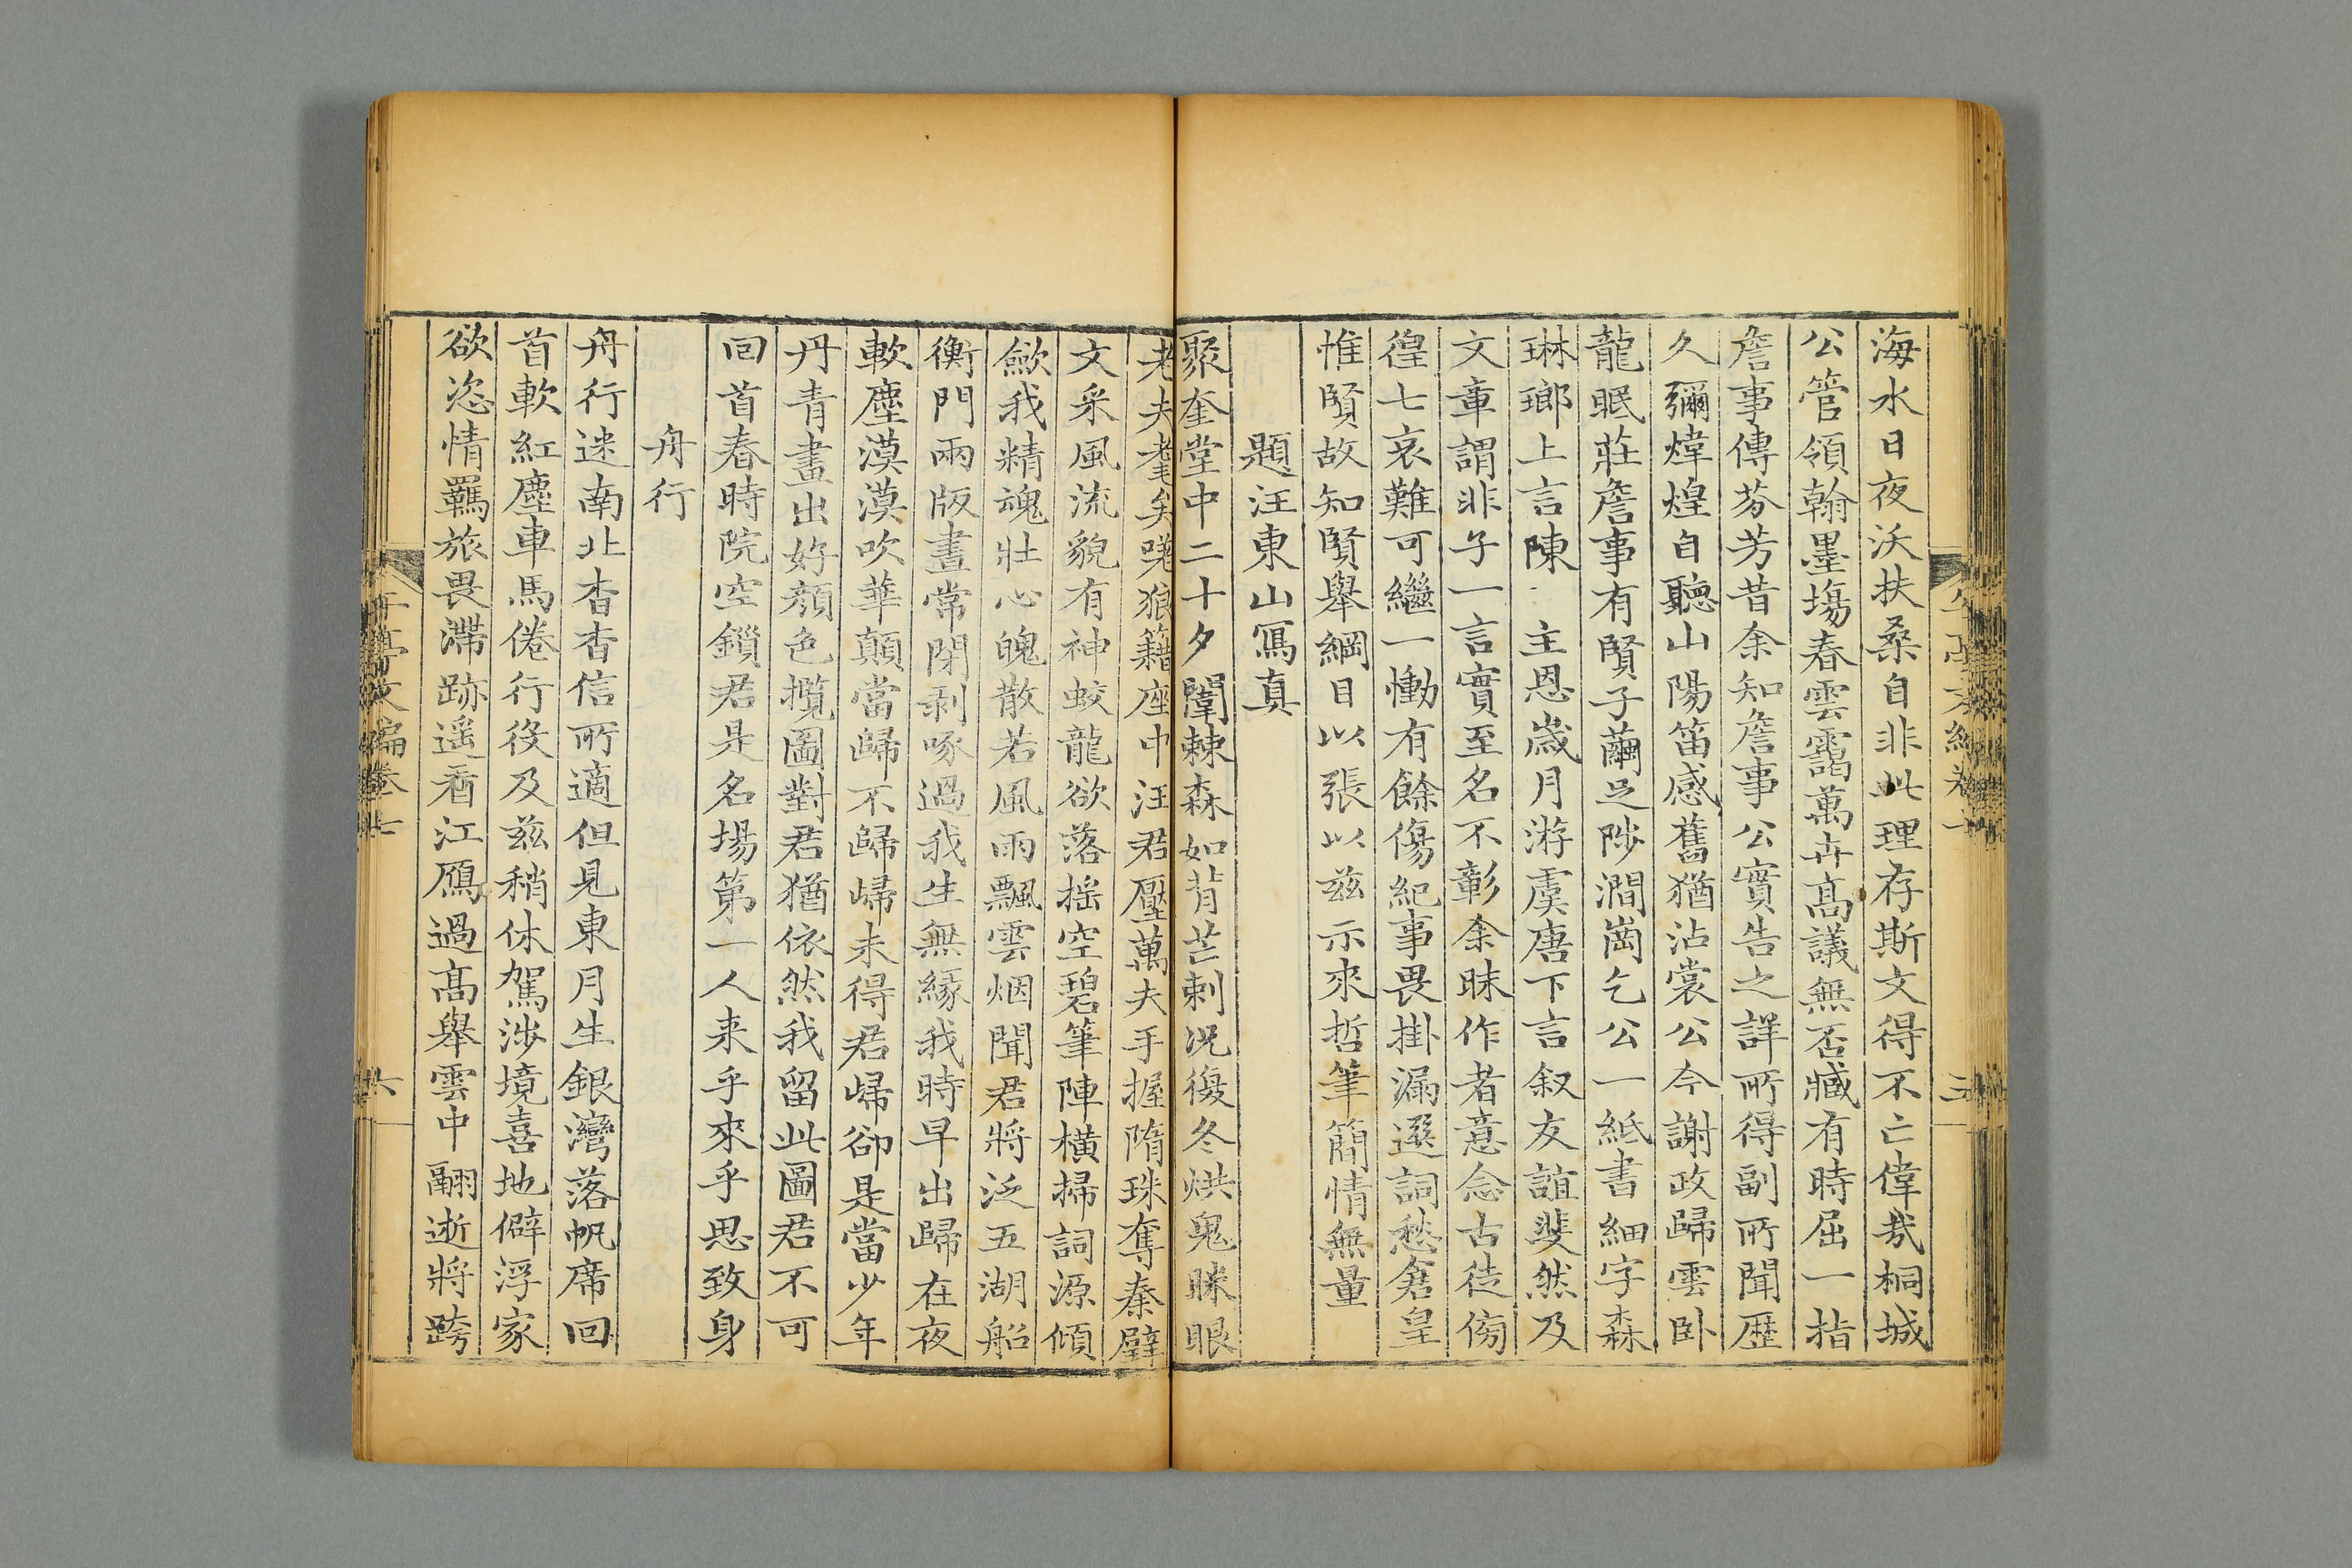 海水日夜沃扶桑自非此理存斯文得不亡偉哉桐城
公管領翰墨塲春雲靄萬卉髙議無否臧有時屈一指
詹事傳芬芳昔余知詹事公實告之詳所得副所聞歴
久彌煒煌自聽山陽笛感舊猶沾裳公今謝政歸雲卧
龍眠莊詹事有賢子繭足陟澗崗乞公一紙書細字森
琳瑯上言陳 主恩歲月游虞唐下言叙友誼斐然及
文章謂非子一言實至名不彰余昧作者意念古徒傍
徨七哀難可繼一慟有餘傷紀事畏掛漏選詞愁倉皇
惟賢故知賢舉綱目以張以兹示來哲筆簡情無量
題汪東山寫真
聚奎堂中二十夕闈棘森如背芒刺况復冬烘鬼眯眼
老夫耄矣嗟狼籍座中汪君壓萬夫手握隋珠奪秦璧
文采風流貌有神蛟龍欲落摇空碧筆陣横掃詞源傾
歛我精魂壯心魄散若風雨飄雲烟聞君將泛五湖船
衡門兩版晝常閉剥啄過我生無緣我時早出歸在夜
軟塵漠漠吹華顛當歸不歸歸未得君歸卻是當少年
丹青畫出好顔色攬圖對君猶依然我留此圖君不可
回首春時院空鎖君是名場第一人来乎來乎思致身
舟行
舟行迷南北杳杳信所適但見東月生銀灣落帆席回
首軟紅塵車馬倦行役及兹稍休駕涉境喜地僻浮家
欲恣情羈旅畏滯跡遥看江鴈過髙舉雲中翮逝將跨
午亭文編卷七
六